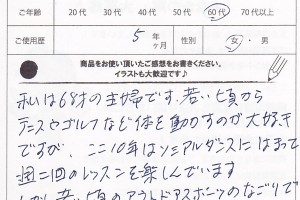 ご年齢 20代 30代 40代 50代 60代 70代以上
ご使用歴 5年 ヶ月 性別 女・男
商品をお使い頂いたご感想をお書きください。
イラストも大歓迎です♪
私は68才の主婦です。若い頃から
テニスやゴルフなど体を動かすのが大好き
ですが、ここ10年はソシアルダンスにはまって
週二回のレッスンを楽しんでいます
しかし若い頃のアウトドアスポーツのなごりで